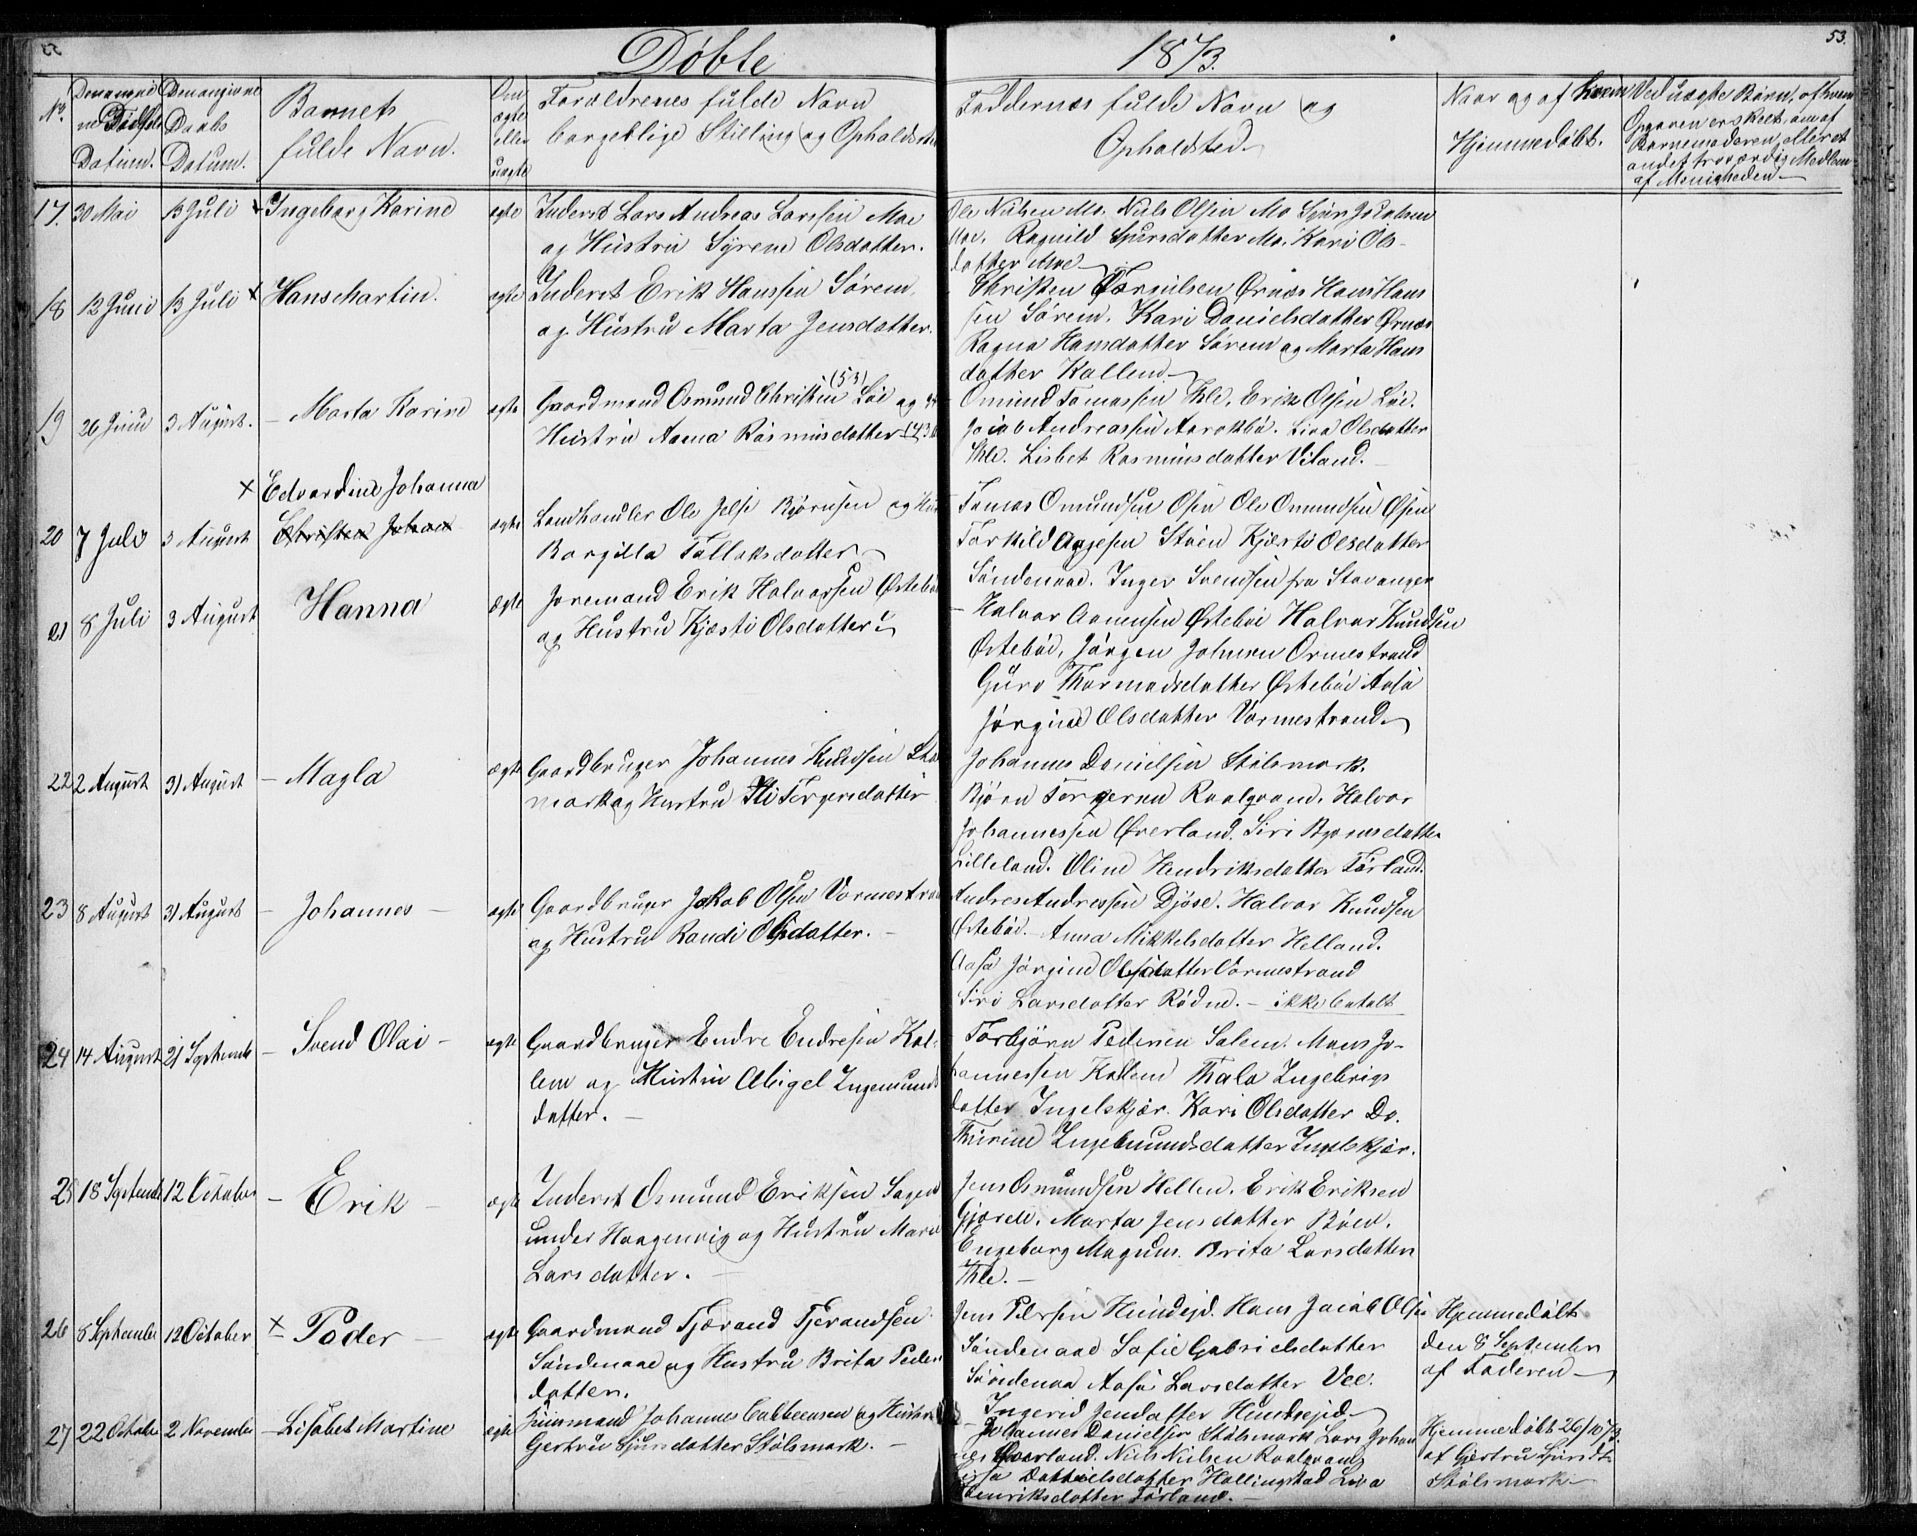 Døbte
1873.
53.
No.
Datum.
Daabs
Datum.
Barnets
fulde Navn.
ægte
eller
uægte
Forældrenes fulde Navn
borgeblige Stilling og Opholds
Faddernes fulde Navn og
Opholdsted.
Naar og af
Hjemmedøbt.
Ved uægte Børn,
af Menigheden
17. 30 Mai 13 Juli Ingeborg Karine ægte Inderst Lars Andreas Larssen Moe
og Hustru Syrene Olsdatter.
Ole Nilsen Mo. Niels Olsen Mo
Moe. Ragnild Sjursdatter Mo. Kari Ols-
datter Moe
18 12 Juni 13 Juli x Hans Martin. ægte Inderst Erik Hanssen Sørem
og Hustru Marta Jensdatter.
Christen Ørnæs Hans Hans
sen Sørem. Kari Danielsdatter Ørnæs
Ragna Hansdatter Sørem og Marta Hans
datter Kallem
19 26 Juni 3 August. - Marta Karine ægte Gaardmand Osmund Christen (53) Løe og
Hustru Anna Rasmusdatter
Omund Tomassen Thle. Erik Olsen Løe.
Jacob Andreassen Lisa Olsdatter
Thle. Lisbet Rasmusdatter Viland.
x Edvardine Johanna
20 7 Juli 3 August Christen Johan ægte Landhandler Ole Jelse Bjørnsen og
Bergilla Tollaksdatter
Tomas Omundsen Osen Ole Omundsen Osen
Torkild Aagesen Støen Kjæsti Olsdatter
Søndenaa. Inger Svendsen fra Stavanger
21 8 Juli 3 August Hanna ægte Erik Halvorsen Østebø
og Hustru Kjæsti Olsdatter
- Halvor Østebø Halvor Knudsen
Østebød. Jørgen Johnsen Ormestrand
Guro Thormodsdatter Østebø Aasa
Jørgine Olsdatter Vormestrand
22 2 August 31 August - Magla ægte Gaardbruger Johannes Knudsen
mark og Hustru Torgersdatter
Johannes Danielsen Stølsmark.
Bjørn Torgersen Raalgvand. Halvor
Johannessen Øverland. Siri Bjørnsdatter
Lilleland. Oline Hendriksdatter Førland.
23 8 August 31 August - Johannes - ægte Gaardbruger Jakob Olsen Vormestran
og Hustru Randi Olsdatter. -
Andres Andressen Djøse. Halvor Knudsen
Østebød. Anna Mikkelsdatter Helland.
Aasa Jørgine Olsdatter Vormestrand
Siri Larsdatter Rødne. - ikke betalt
24 14 August 21 Septembe - Svend Olai - ægte Gaardbruger Endre Endresen Kal-
lem og Hustru Abigel Ingemunds
datter. -
Torbjørn Pedersen Salem. Mons Jo-
hannessen Kallem Thala Ingebrigs
datter Ingelskjær. Kari Olsdatter Do.
Ingebmundsdatter Ingelskjær.
25 18 Septembe 12 Octobe - Erik - ægte Inderst Osmund Eriksen Sagen
under Haagenvig og Hustru Mari
Larsdatter. -
Jens Osmundsen Hellen. Erik Eriksen
Gjerde. Marta Jensdatter Bøen.
Engeborg Brita Larsdatter
Thle. -
26 8 Septembe 12 October x Peder - ægte Gaardmand Tjærand Tjerandsen
Søndenaae og Hustru Brita Peder
datter.
Jens Pedersen Hundejd. Hans Jacob Olsen
Søndenaae Sofie Gabrielsdatter
Søndenaa Aasa Larsdatter Vee.
Ingerid Jensdatter Hundsejd
Hjemmedøbt
den 8 September
af Faderen
27 22 Octobe 2 Novembe - Lisabet Martine ægte Johannes Cabbeensen og Hustru
Gjertru Sjursdatter Stølsmark. -
Johannes Danielsen Stølsmark Lars Johan
nes Øverland. Niels Nielsen Raalgvand
Danielsdatter Hallingstad Lisa
Henriksdatter Førland. -
Hjemmedøbt 26/10 73
af Gjertru Sjursdt
Stølsmark